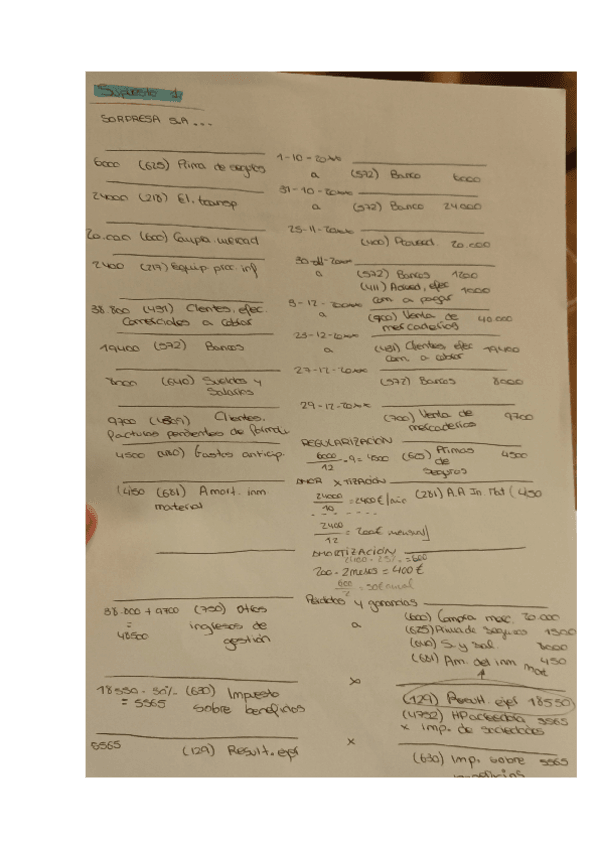 Supuesto 1
SORPRESA S.A ...
6000 (625) Prima de seguros 1-10-20 a (572) Banco 6000
24000 (218) El. transp 31-10-20 a (572) Banco 24000
20.000 (600) Compra mercad 25-11-20 (400) Proveed. 20.000
2400 (217) Equip proc. inf 30-11-20 a (572) Bancos 1200
(411) Acreed, efec com a pagar 1000
38.800 (431) Clientes, efec. Comerciales a cobrar 5-12-20 a (700) Venta de mercaderías 40.000
19400 (572) Bancos 25-12-20 a (431) Clientes efec com. a cobrar 19400
8000 (640) Sueldos y Salarios 27-12-20 (572) Bancos 8000
9700 Clientes, facturas pendientes de formali 29-12-20 (700) Venta de mercaderías 9700
REGULARIZACIÓN
4500 (480) Gastos anticip. 6000/12 · 9 = 4500 Primas de seguros 4500
AMORTIZACIÓN
450 (681) Amort. inm material 24000/10 = 2400 €/año (281) A.A In. Mat 450
2400/12 = 200€ mensual
AMORTIZACIÓN
2400 · 25% = 600
200 · 2 meses = 400 €
Pérdidas y ganancias
38.800 + 9700 = 48500 (750) Otros ingresos de gestión a (600) Compra merc. 20.000
(625) Prima de seguro 1500
(640) S. y sal. 8000
(681) Am. del inm Mat 450
(129) Result. ejer 18550
18550 · 30% = 5565 (630) Impuesto sobre beneficios x (4752) HP acreedora x imp. de sociedades 5565
5565 (129) Result. ejer x (630) Imp. sobre beneficios 5565